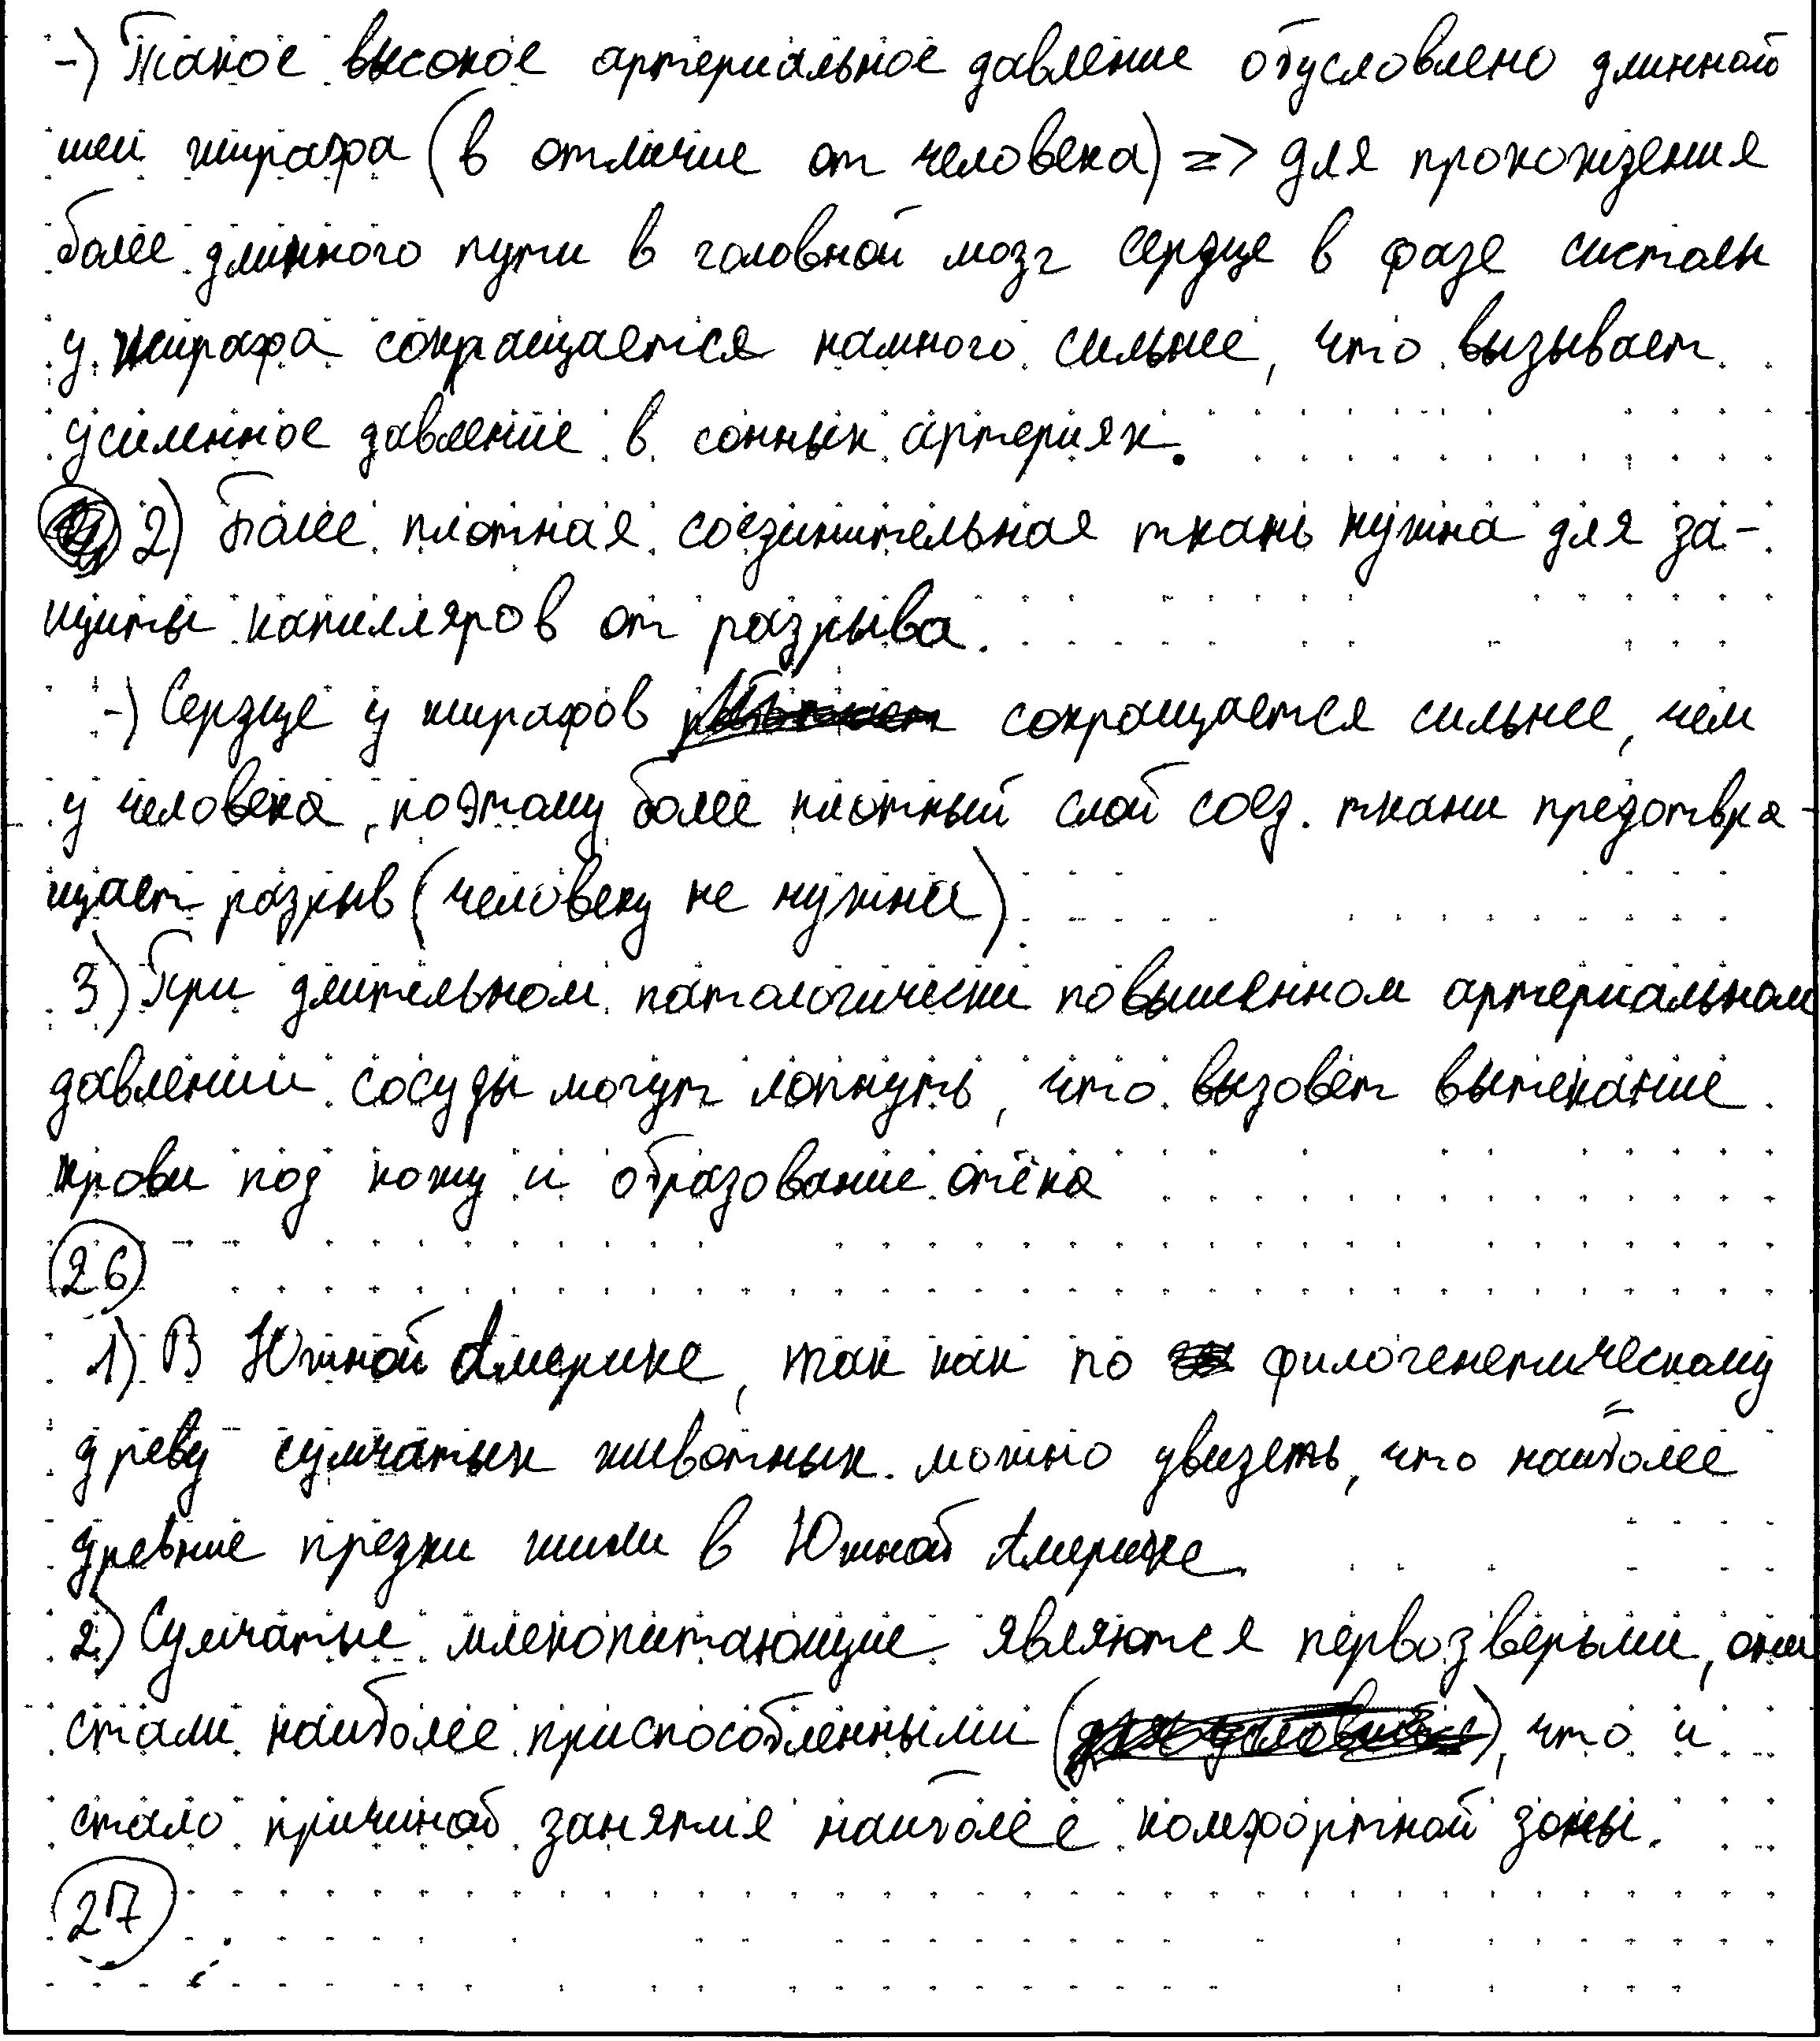 -) Такое высокое артериальное давление обусловлено длинной
шеи жирафа (в отличие от человека) => для прохождения
более длинного пути в головной мозг сердце в фазе систолы
у жирафа сокращается намного сильнее, что вызывает
усиленное давление в сонных артериях.
2) Более плотная соединительная ткань нужна для за-
щиты капилляров от разрыва.
-) Сердце у жирафов сокращается сильнее, чем
у человека, поэтому более плотный слой соед. ткани предотвра-
щает разрыв (человеку не нужнее)
3) При длительном патологически повышенном артериальном
давлении сосуды могут лопнуть, что вызовет вытекание
крови под кожу и образование отёка
26
1) В Южной Америке, так как по филогенетическому
древу сумчатых животных можно увидеть, что наиболее
древние предки жили в Южной Америке.
2) Сумчатые млекопитающие являются первозверьми, они
стали наиболее приспособленными, что и
стало причиной занятия наиболее комфортной зоны.
27